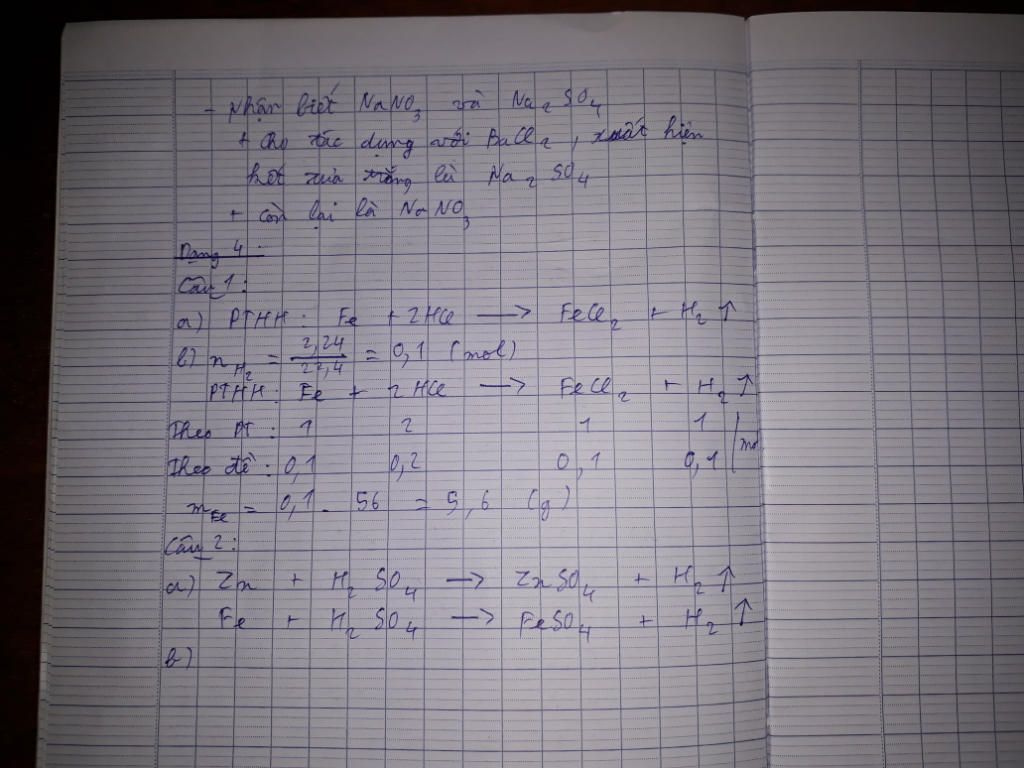 - Nhận biết NaNO3 và Na2SO4
+ Cho tác dụng với BaCl2, xuất hiện
kết tủa trắng là Na2SO4
+ Còn lại là NaNO3
Dạng 4:
Câu 1:
a) PTHH: Fe + 2HCl → FeCl2 + H2↑
b) nH2 = 2,24/22,4 = 0,1 (mol)
PTHH: Fe + 2HCl → FeCl2 + H2↑
Theo PT: 1 2 1 1
Theo đề: 0,1 0,2 0,1 0,1 /mol
mFe = 0,1 . 56 = 5,6 (g)
Câu 2:
a) Zn + H2SO4 → ZnSO4 + H2↑
Fe + H2SO4 → FeSO4 + H2↑
b)